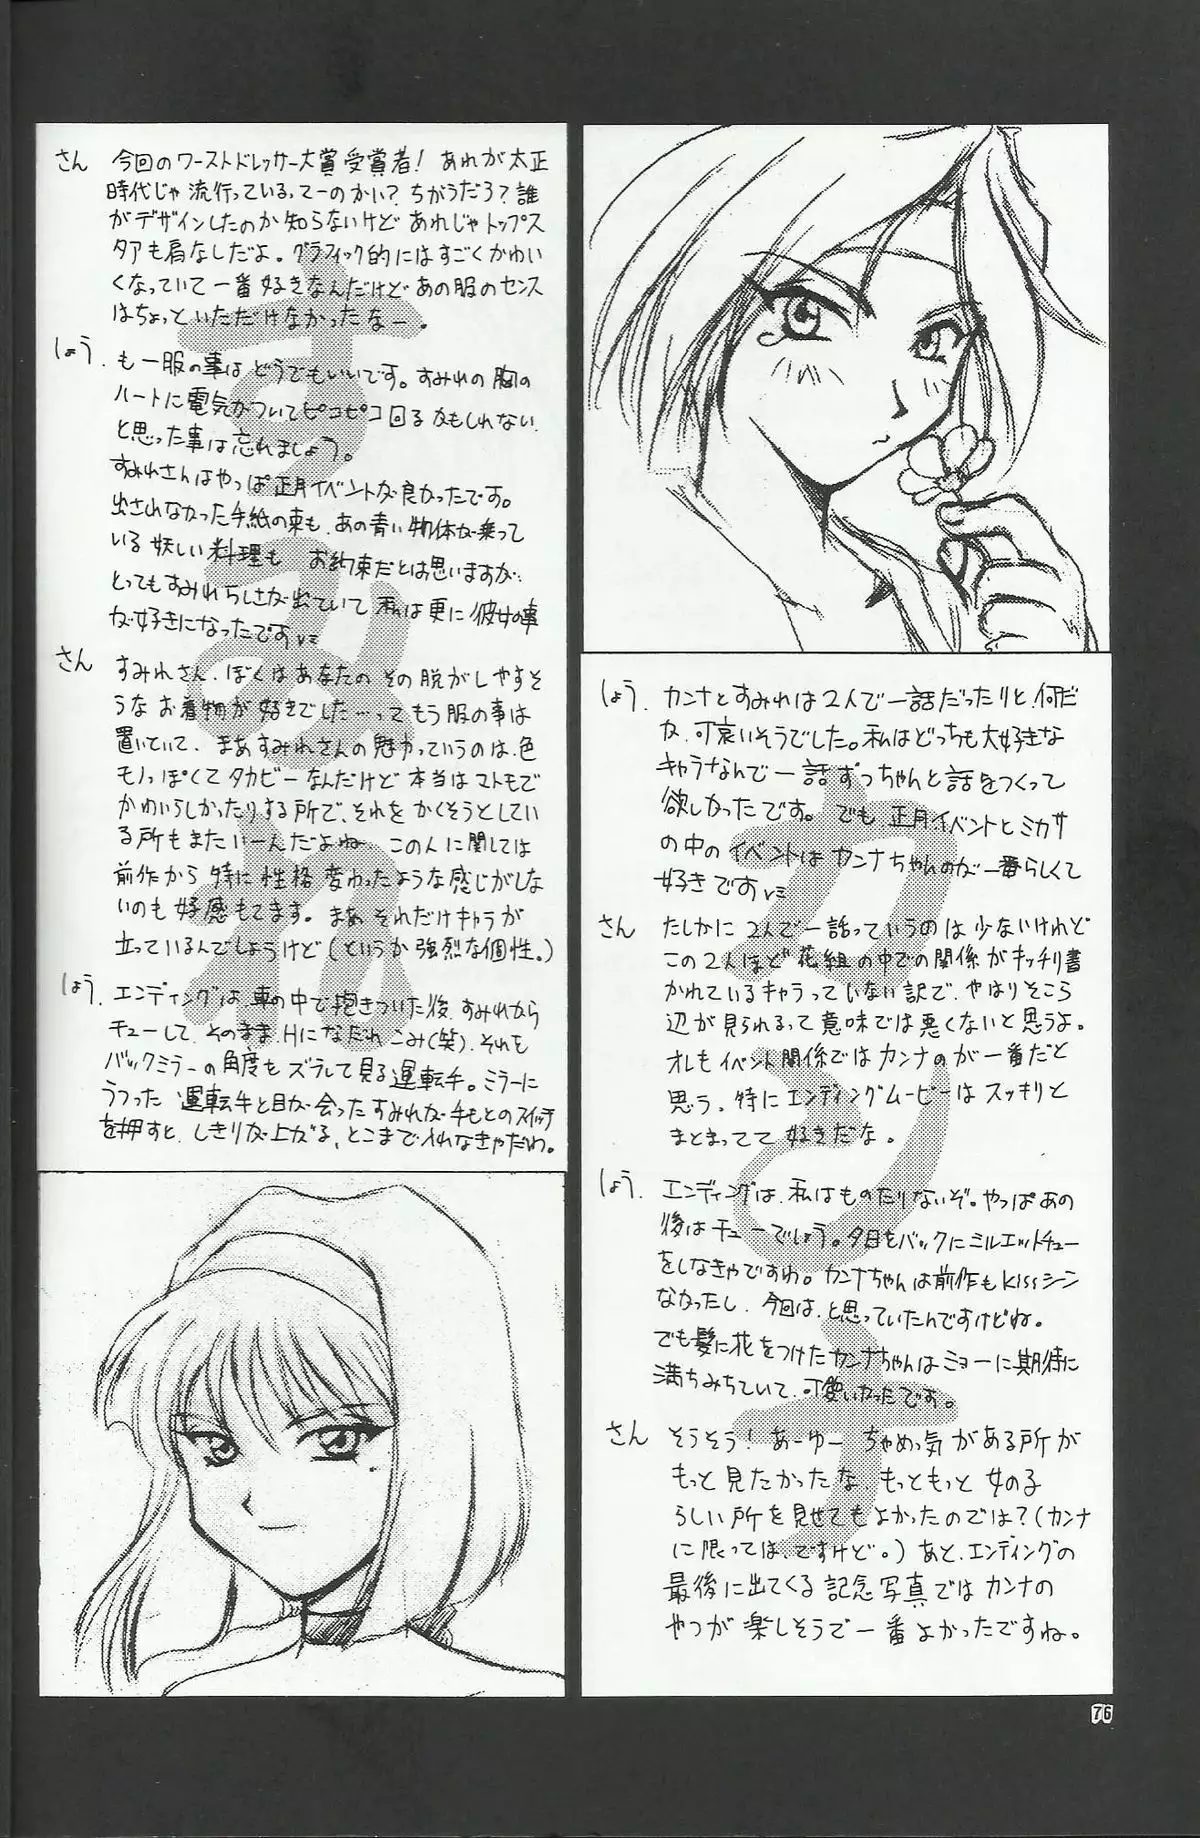 さん 今回のワーストドレッサー大賞受賞者! あれが太正
時代じゃ流行っているってーのかい? ちがうだろ? 誰
がデザインしたのか知らないけど あれじゃトップス
タアも肩なしだよ。グラフィック的にはすごくかわい
くなっていて一番好きなんだけど あの服のセンス
はちょっといただけなかったなー。
しょう. も一服の事は どうでもいいです。すみれの胸の
ハートに電気がついてピコピコ回るかもしれない.
と思った事は忘れましょう。
すみれさんはやっぱ正月イベントが良かったです。
出されなかった手紙の束も、あの青い物体が乗って
いる妖しい料理も お約束だとは思いますが..
とってもすみれらしさが出ていて 私は更に彼女の事
が好きになったです
さん すみれさん、ぼくはあなたの その脱がしやすそ
うな お着物が好きでした…ってもう服の事は
置いていて、まあすみれさんの魅力っていうのは、色
モノっぽくてタカビーなんだけど 本当はマトモで
かわいらしかったりする所で、それをかくそうとしてい
る所もまたいーんだよね この人に関しては
前作から特に性格変わったような感じがしな
いのも好感もてます。まあ それだけキャラが
立っているんでしょうけど(というか強烈な個性。)
しょう. エンディングは、車の中で抱きついた後、すみれから
チューして、そのままHになだれこみ(笑)、それを
バックミラーの角度をズラして見る運転手。ミラーに
うつった 運転手と目が会ったすみれが手もとのスイッチ
を押すと、しきりが上がる、とこまで入れなきゃだわ。
しょう. カンナとすみれは2人で一話だったりと、何だ
か、可哀いそうでした。私はどっちも大好きな
キャラなんで一話ずっちゃんと話をつくって
欲しかったです。でも 正月イベントとミカサ
の中のイベントはカンナちゃんのが一番らしくて
好きです
さん たしかに2人で一話っていうのは少ないけれど
この2人ほど花組の中での関係がキッチリ書
かれているキャラっていない訳で、やはりそこら
辺が見られるって意味では悪くないと思うよ。
オレもイベント関係ではカンナのが一番だと
思う。特にエンディングムービーはスッキリと
まとまってて好きだな。
しょう. エンディングは、私はものたりないぞ。やっぱあの
後はチューでしょう。夕日をバックにミルエットチュー
をしなきゃですわ。カンナちゃんは前作もKissシーン
なかったし、今回は、と思っていたんですけどね。
でも髪に花をつけたカンナちゃんはミョーに期待に
満ちみちていて、可愛いかったです。
さん そうそう! あーゆー ちゃめっ気がある所が
もっと見たかったな もっともっと 女の子
らしい所を見せてもよかったのでは?(カンナ
に限っては、ですけど。) あと、エンディングの
最後に出てくる記念写真ではカンナの
やつが楽しそうで一番よかったですね。
76